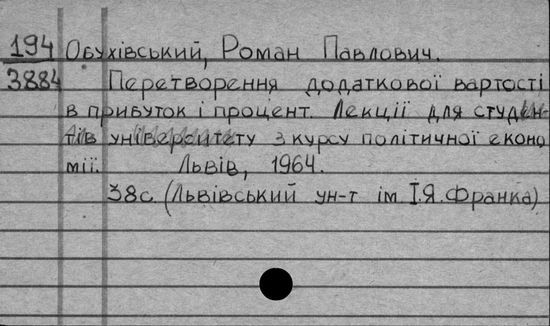 194 Обухівський, Роман Павлович.
3884 Перетворення додаткової вартості
в прибуток і процент. Лекції для студен-
тів університету з курсу політичної еконо
мії. Львів, 1964.
38с. (Львівський ун-т ім. І.Я.Франка)